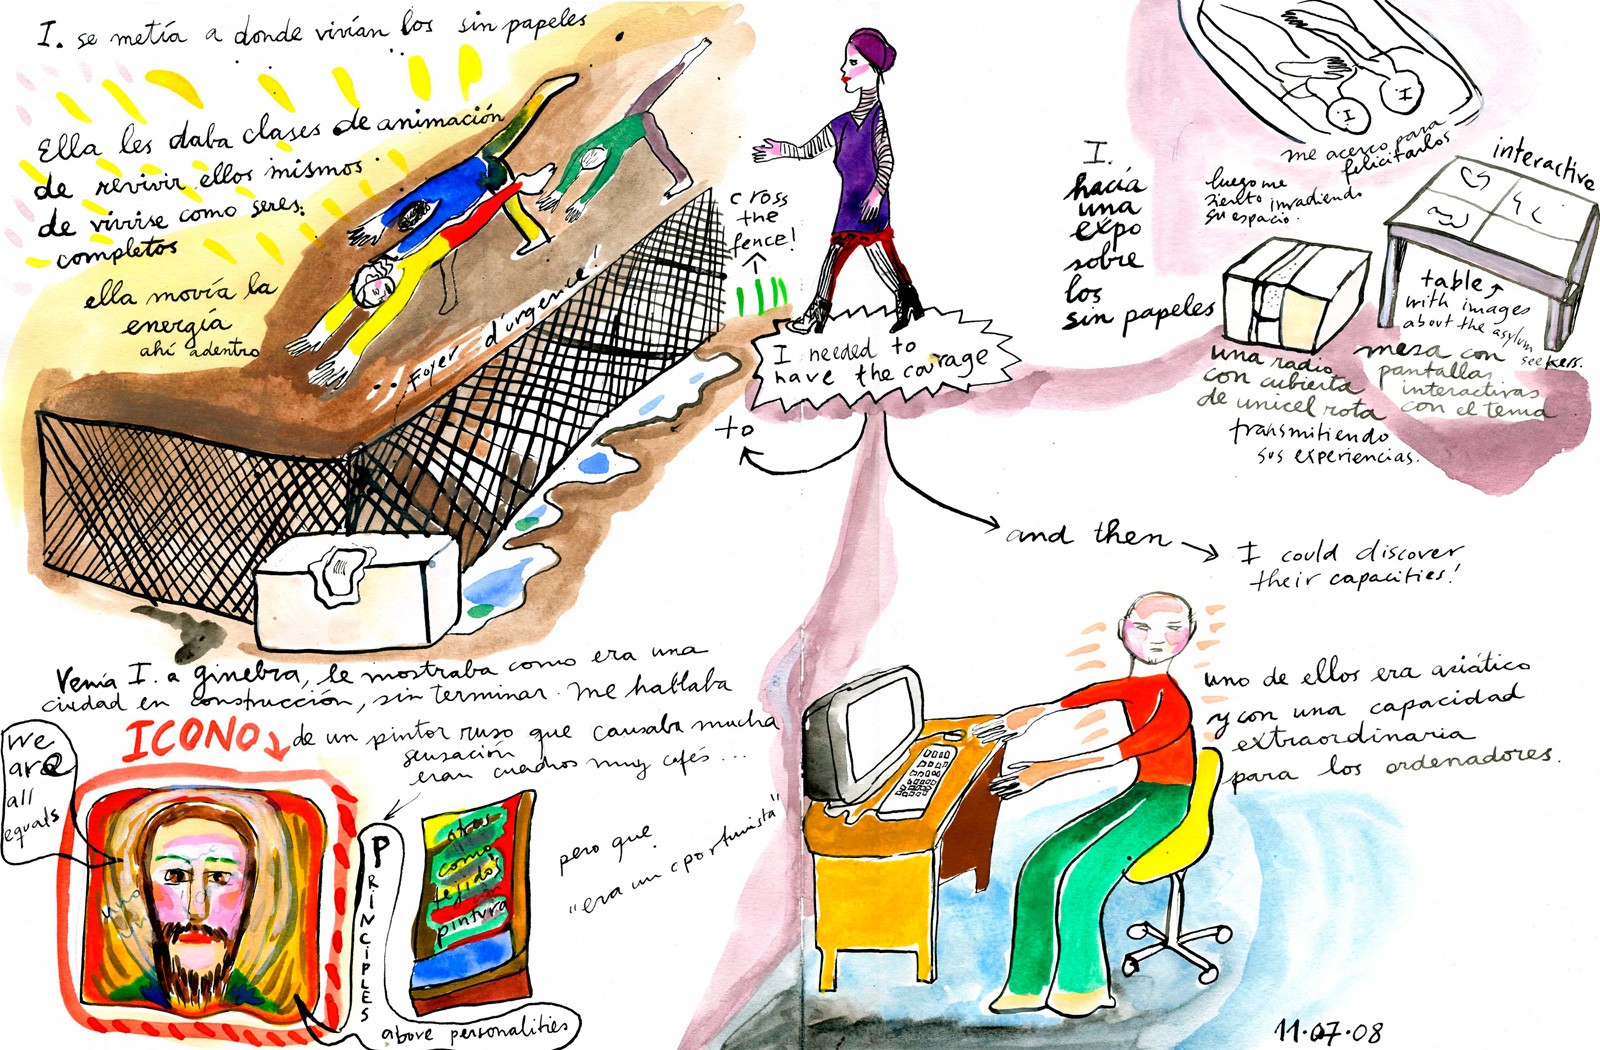 I. se metía a donde vivían los sin papeles
Ella les daba clases de animación
de revivir ellos mismos
de vivirse como seres
completos
ella movía la
energía
ahí adentro
... Foyer d'urgence!
cross
the
fence!
I needed to
have the courage
to
and then
I could discover
their capacities!
I.
hacía
una
expo
sobre
los
sin papeles
me acerco para
felicitarlos
luego me
siento invadiendo
su espacio.
interactive
table
with images
about the asylum
seekers.
una radio
con cubierta
de unicel rota
transmitiendo
sus experiencias.
mesa con
pantallas
interactivas
con el tema
I
I
Venía I. a ginebra, le mostraba como era una
ciudad en construcción, sin terminar. Me hablaba
de un pintor ruso que causaba mucha
sensación
eran cuadros muy cafés...
ICONO
we
are
all
equals
PRINCIPLES
above personalities
otros
como
tejidos
sin
pintura
pero que
"era un oportunista"
uno de ellos era asiático
y con una capacidad
extraordinaria
para los ordenadores.
11.07.08